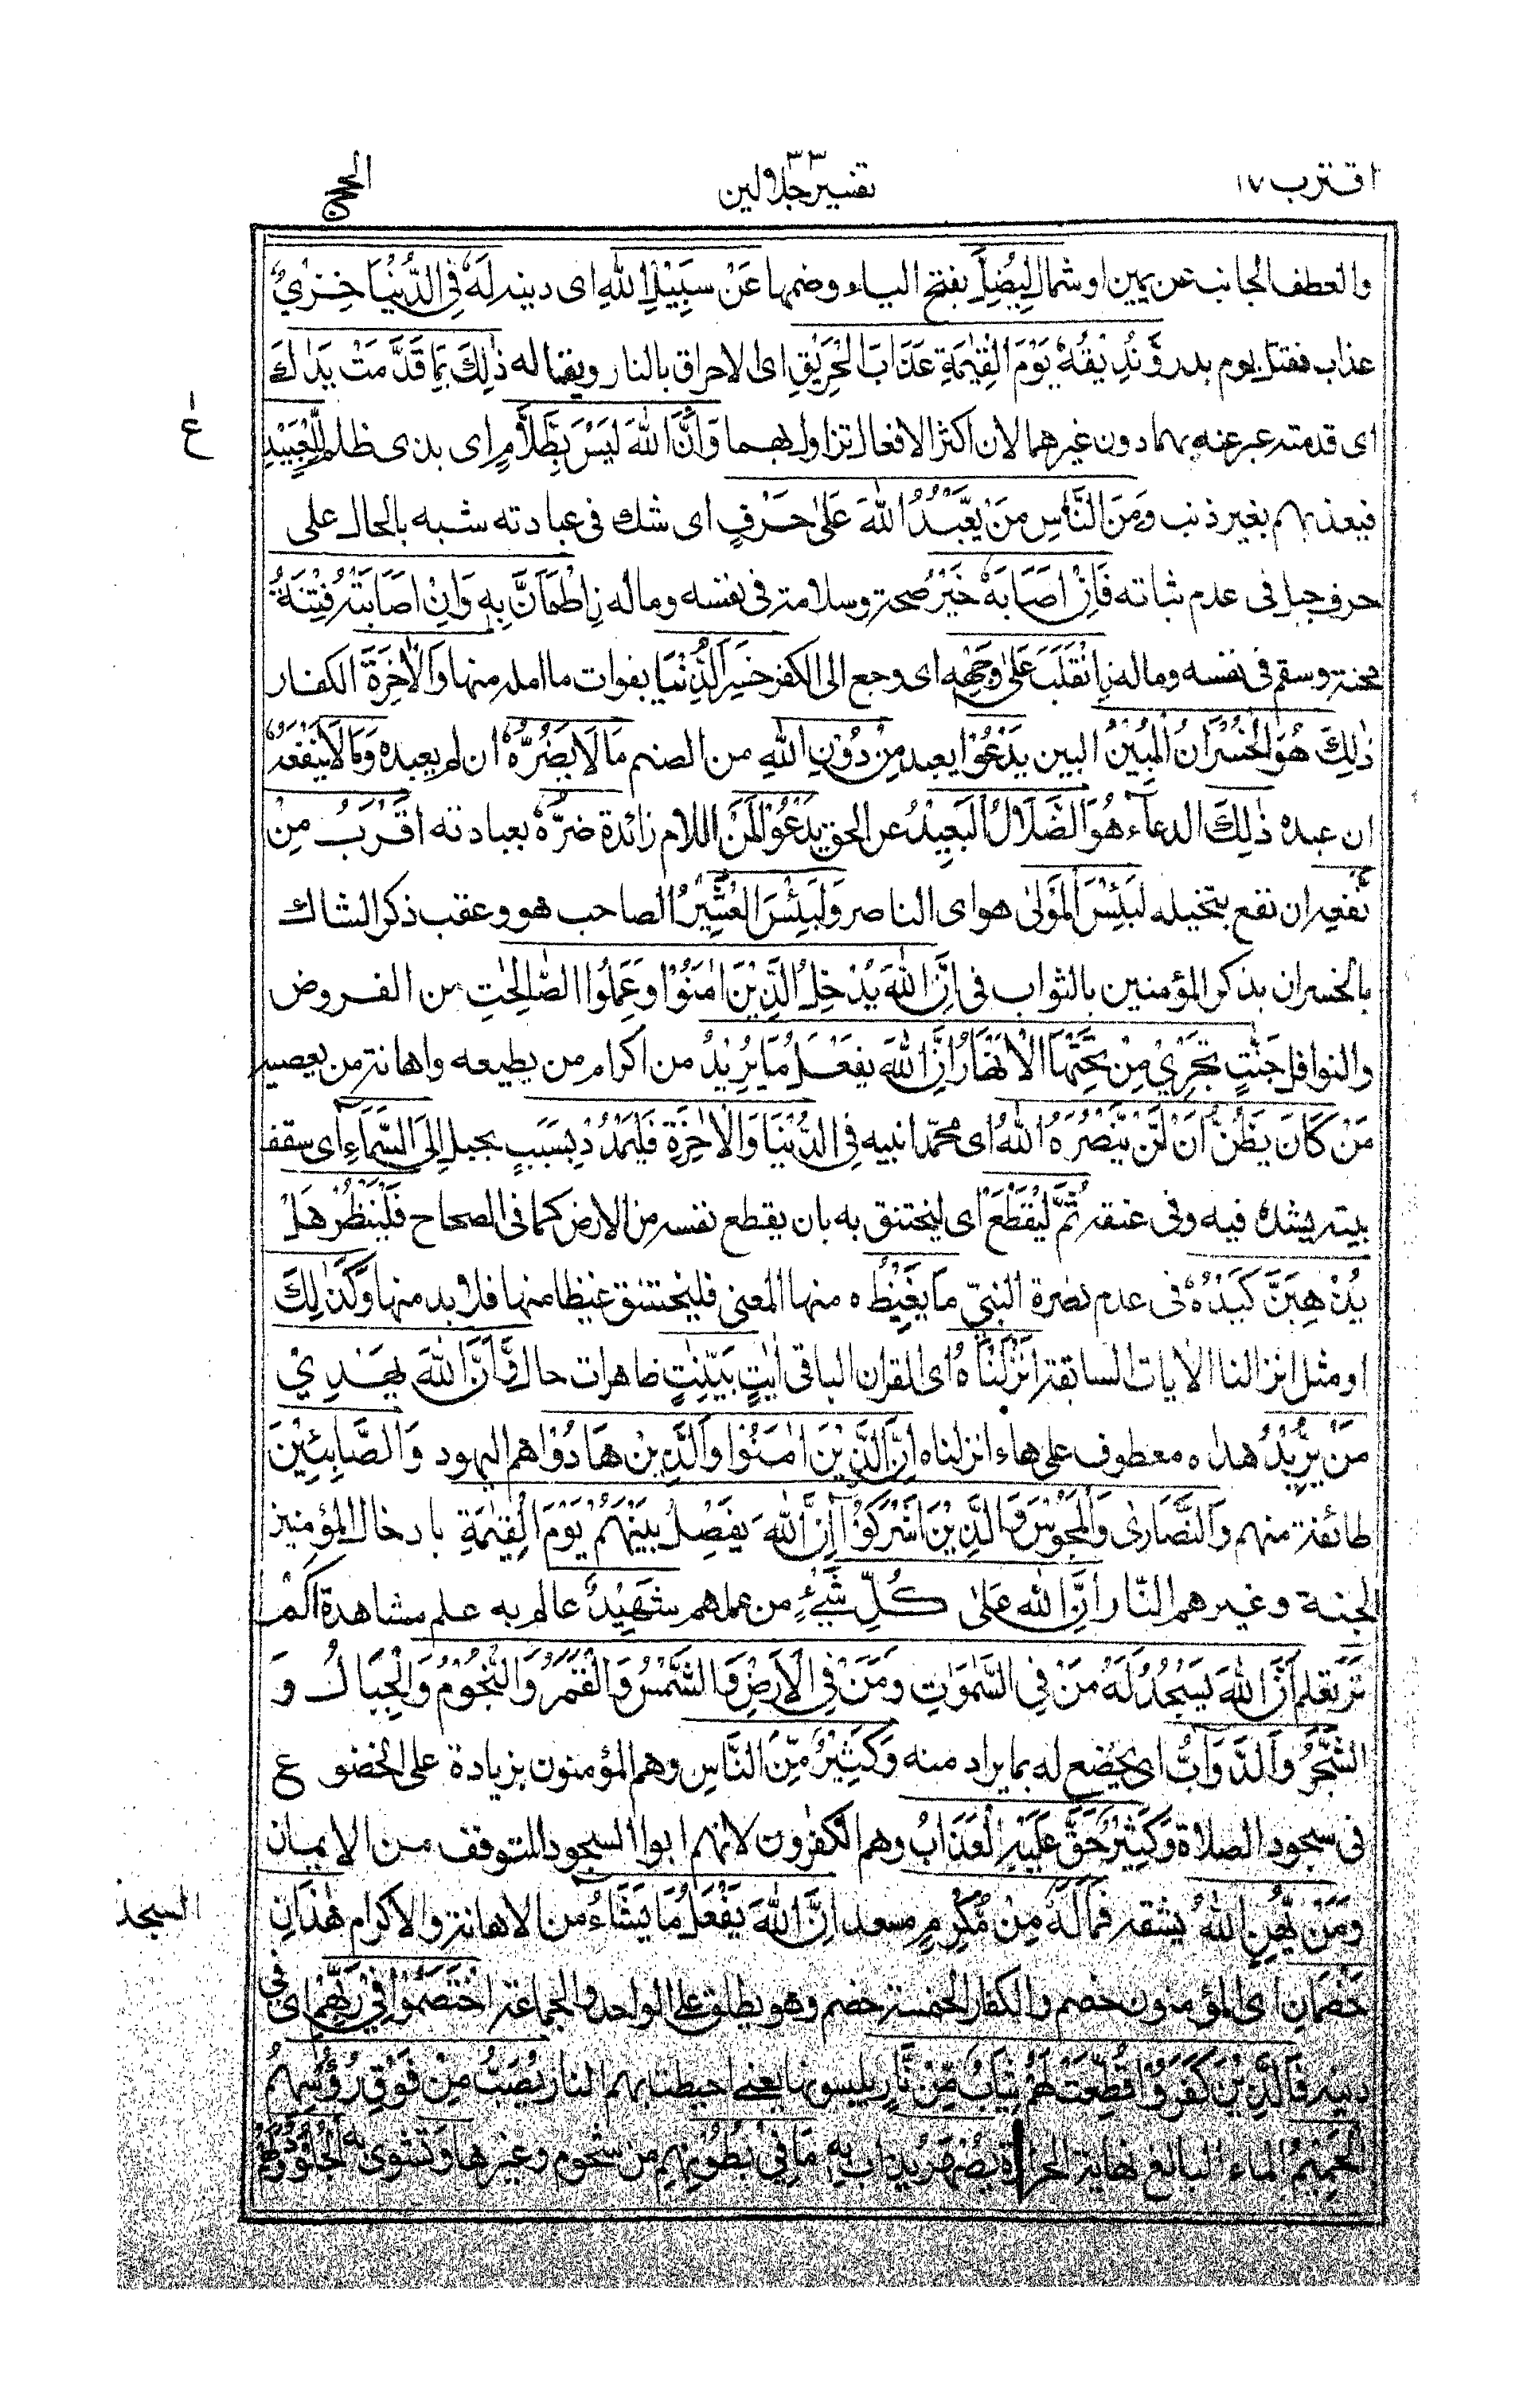 اقترب ١٧
٣٣
تفسير جلالين
الحج
والعطف الجانب عن يمين او شمال لِيُضِلَّ بفتح الياء وضمها عَنْ سَبِيْلِ اللّٰهِ اى دينه لَهٗ فِى الدُّنْيَا خِزْيٌ
عذاب فقتل يوم بدر وَّنُذِيْقُهٗ يَوْمَ الْقِيٰمَةِ عَذَابَ الْحَرِيْقِ اى الاحراق بالنار ويقال له ذٰلِكَ بِمَا قَدَّمَتْ يَدٰكَ
اى قدمته عبر عنه بهما دون غيرهما لان اكثر الافعال تزاول بهما وَاَنَّ اللّٰهَ لَيْسَ بِظَلَّامٍ اى بذى ظلم لِّلْعَبِيْدِ
ع
فيعذبهم بغير ذنب وَمِنَ النَّاسِ مَنْ يَّعْبُدُ اللّٰهَ عَلٰى حَرْفٍ اى شك فى عبادته شبه بالحال على
حرف جبل فى عدم ثباته فَاِنْ اَصَابَهٗ خَيْرُ صحة وسلامة فى نفسه وماله نِاطْمَاَنَّ بِهٖ وَاِنْ اَصَابَتْهُ فِتْنَةُ
محنة وسقم فى نفسه وماله نِانْقَلَبَ عَلٰى وَجْهِهٖ اى رجع الى الكفر خَسِرَ الدُّنْيَا بفوات ما امله منها وَالْاٰخِرَةَ الكفار
ذٰلِكَ هُوَ الْخُسْرَانُ الْمُبِيْنُ البين يَدْعُوْا يعبد مِنْ دُوْنِ اللّٰهِ من الصنم مَا لَا يَضُرُّهٗ ان لم يعبده وَمَا لَا يَنْفَعُهٗ
ان عبده ذٰلِكَ الدعآء هُوَ الضَّلَالُ الْبَعِيْدُ عن الحق يَدْعُوْا لَمَنْ اللام زائدة ضَرُّهٗ بعبادته اَقْرَبُ مِنْ
نَّفْعِهٖ ان نفع بتخيله لَبِئْسَ الْمَوْلٰى هو اى الناصر وَلَبِئْسَ الْعَشِيْرُ الصاحب هو وعقب ذكر الشاك
بالخسران بذكر المؤمنين بالثواب فى اِنَّ اللّٰهَ يُدْخِلُ الَّذِيْنَ اٰمَنُوْا وَعَمِلُوا الصّٰلِحٰتِ من الفروض
والنوافل جَنّٰتٍ تَجْرِيْ مِنْ تَحْتِهَا الْاَنْهَارُ اِنَّ اللّٰهَ يَفْعَلُ مَا يُرِيْدُ من اكرام من يطيعه واهانة من يعصيه
مَنْ كَانَ يَظُنُّ اَنْ لَّنْ يَّنْصُرَهُ اللّٰهُ اى محمدا نبيه فِى الدُّنْيَا وَالْاٰخِرَةِ فَلْيَمْدُدْ بِسَبَبٍ بحبل اِلَى السَّمَآءِ اى سقف
بيته يشده فيه وفى عنقه ثُمَّ لْيَقْطَعْ اى ليختنق به بان يقطع نفسه من الارض كما فى الصحاح فَلْيَنْظُرْ هَلْ
يُذْهِبَنَّ كَيْدُهٗ فى عدم نصرة النبىّ مَا يَغِيْظُ ه منها المعنى فليختنق غيظا منها فلا بد منها وَكَذٰلِكَ
او مثل انزالنا الآيات السابقة اَنْزَلْنٰهُ اى القران الباقى اٰيٰتٍ بَيِّنٰتٍ ظاهرات حال وَّاَنَّ اللّٰهَ يَهْدِيْ
مَنْ يُّرِيْدُ هداه معطوف على هاء انزلناه اِنَّ الَّذِيْنَ اٰمَنُوْا وَالَّذِيْنَ هَادُوْا هم اليهود وَالصَّابِئِيْنَ
طائفة منهم وَالنَّصَارٰى وَالْمَجُوْسَ وَالَّذِيْنَ اَشْرَكُوْٓا اِنَّ اللّٰهَ يَفْصِلُ بَيْنَهُمْ يَوْمَ الْقِيٰمَةِ بادخال المؤمنين
الجنة وغيرهم النّار اِنَّ اللّٰهَ عَلٰى كُلِّ شَيْءٍ من عملهم شَهِيْدٌ عالم به علم مشاهدة اَلَمْ
تَرَ تعلم اَنَّ اللّٰهَ يَسْجُدُ لَهٗ مَنْ فِى السَّمٰوٰتِ وَمَنْ فِى الْاَرْضِ وَالشَّمْسُ وَالْقَمَرُ وَالنُّجُوْمُ وَالْجِبَالُ وَ
الشَّجَرُ وَالدَّوَآبُّ اى يخضع له بما يراد منه وَكَثِيْرٌ مِّنَ النَّاسِ وهم المؤمنون بزيادة على الخضوع
فى سجود الصلاة وَكَثِيْرٌ حَقَّ عَلَيْهِ الْعَذَابُ وهم الكفرون لانهم ابوا السجود المتوقف من الايمان
وَمَنْ يُّهِنِ اللّٰهُ يشقه فَمَا لَهٗ مِنْ مُّكْرِمٍ مسعد اِنَّ اللّٰهَ يَفْعَلُ مَا يَشَآءُ من الاهانة والاكرام هٰذَانِ
السجد
خَصْمَانِ اى المؤمنون خصم والكفار الخمسة خصم وهو يطلق على الواحد والجماعة اخْتَصَمُوْا فِيْ رَبِّهِمْ اى فى
دينه فَالَّذِيْنَ كَفَرُوْا قُطِّعَتْ لَهُمْ ثِيَابٌ مِّنْ نَّارٍ يلبسونها يعنى احيطت بهم النار يُصَبُّ مِنْ فَوْقِ رُءُوْسِهِمُ
الْحَمِيْمُ الماء البالغ نهاية الحرارة يُصْهَرُ يذاب بِهٖ مَا فِيْ بُطُوْنِهِمْ من شحوم وغيرها وَتشوى به الْجُلُوْدُ وَلَهُمْ